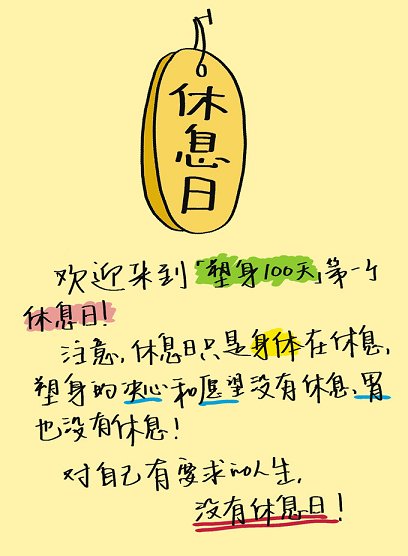 休息日
欢迎来到「塑身100天」第一个
休息日!
注意,休息日只是身体在休息,
塑身的决心和愿望没有休息、胃
也没有休息!
对自己有要求的人生,
没有休息日!